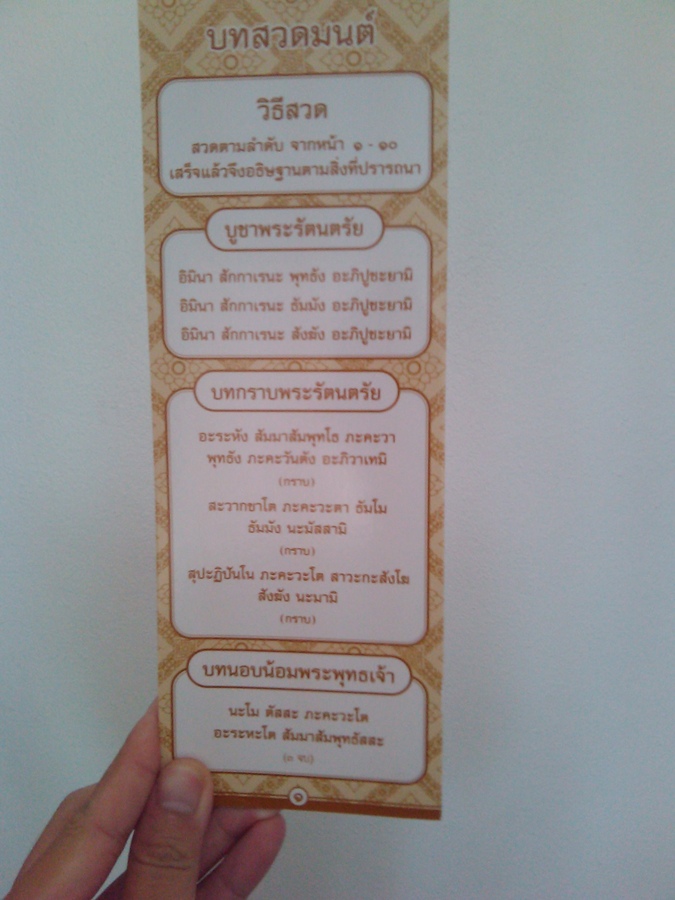 บทสวดมนต์
วิธีสวด
สวดตามลำดับ จากหน้า ๑ - ๑๐
เสร็จแล้วจึงอธิษฐานตามสิ่งที่ปรารถนา
บูชาพระรัตนตรัย
อิมินา สักกาเรนะ พุทธัง อะภิปูชะยามิ
อิมินา สักกาเรนะ ธัมมัง อะภิปูชะยามิ
อิมินา สักกาเรนะ สังฆัง อะภิปูชะยามิ
บทกราบพระรัตนตรัย
อะระหัง สัมมาสัมพุทโธ ภะคะวา
พุทธัง ภะคะวันตัง อะภิวาเทมิ
(กราบ)
สะวากขาโต ภะคะวะตา ธัมโม
ธัมมัง นะมัสสามิ
(กราบ)
สุปะฏิปันโน ภะคะวะโต สาวะกะสังโฆ
สังฆัง นะมามิ
(กราบ)
บทนอบน้อมพระพุทธเจ้า
นะโม ตัสสะ ภะคะวะโต
อะระหะโต สัมมาสัมพุทธัสสะ
(๓ จบ)
๑